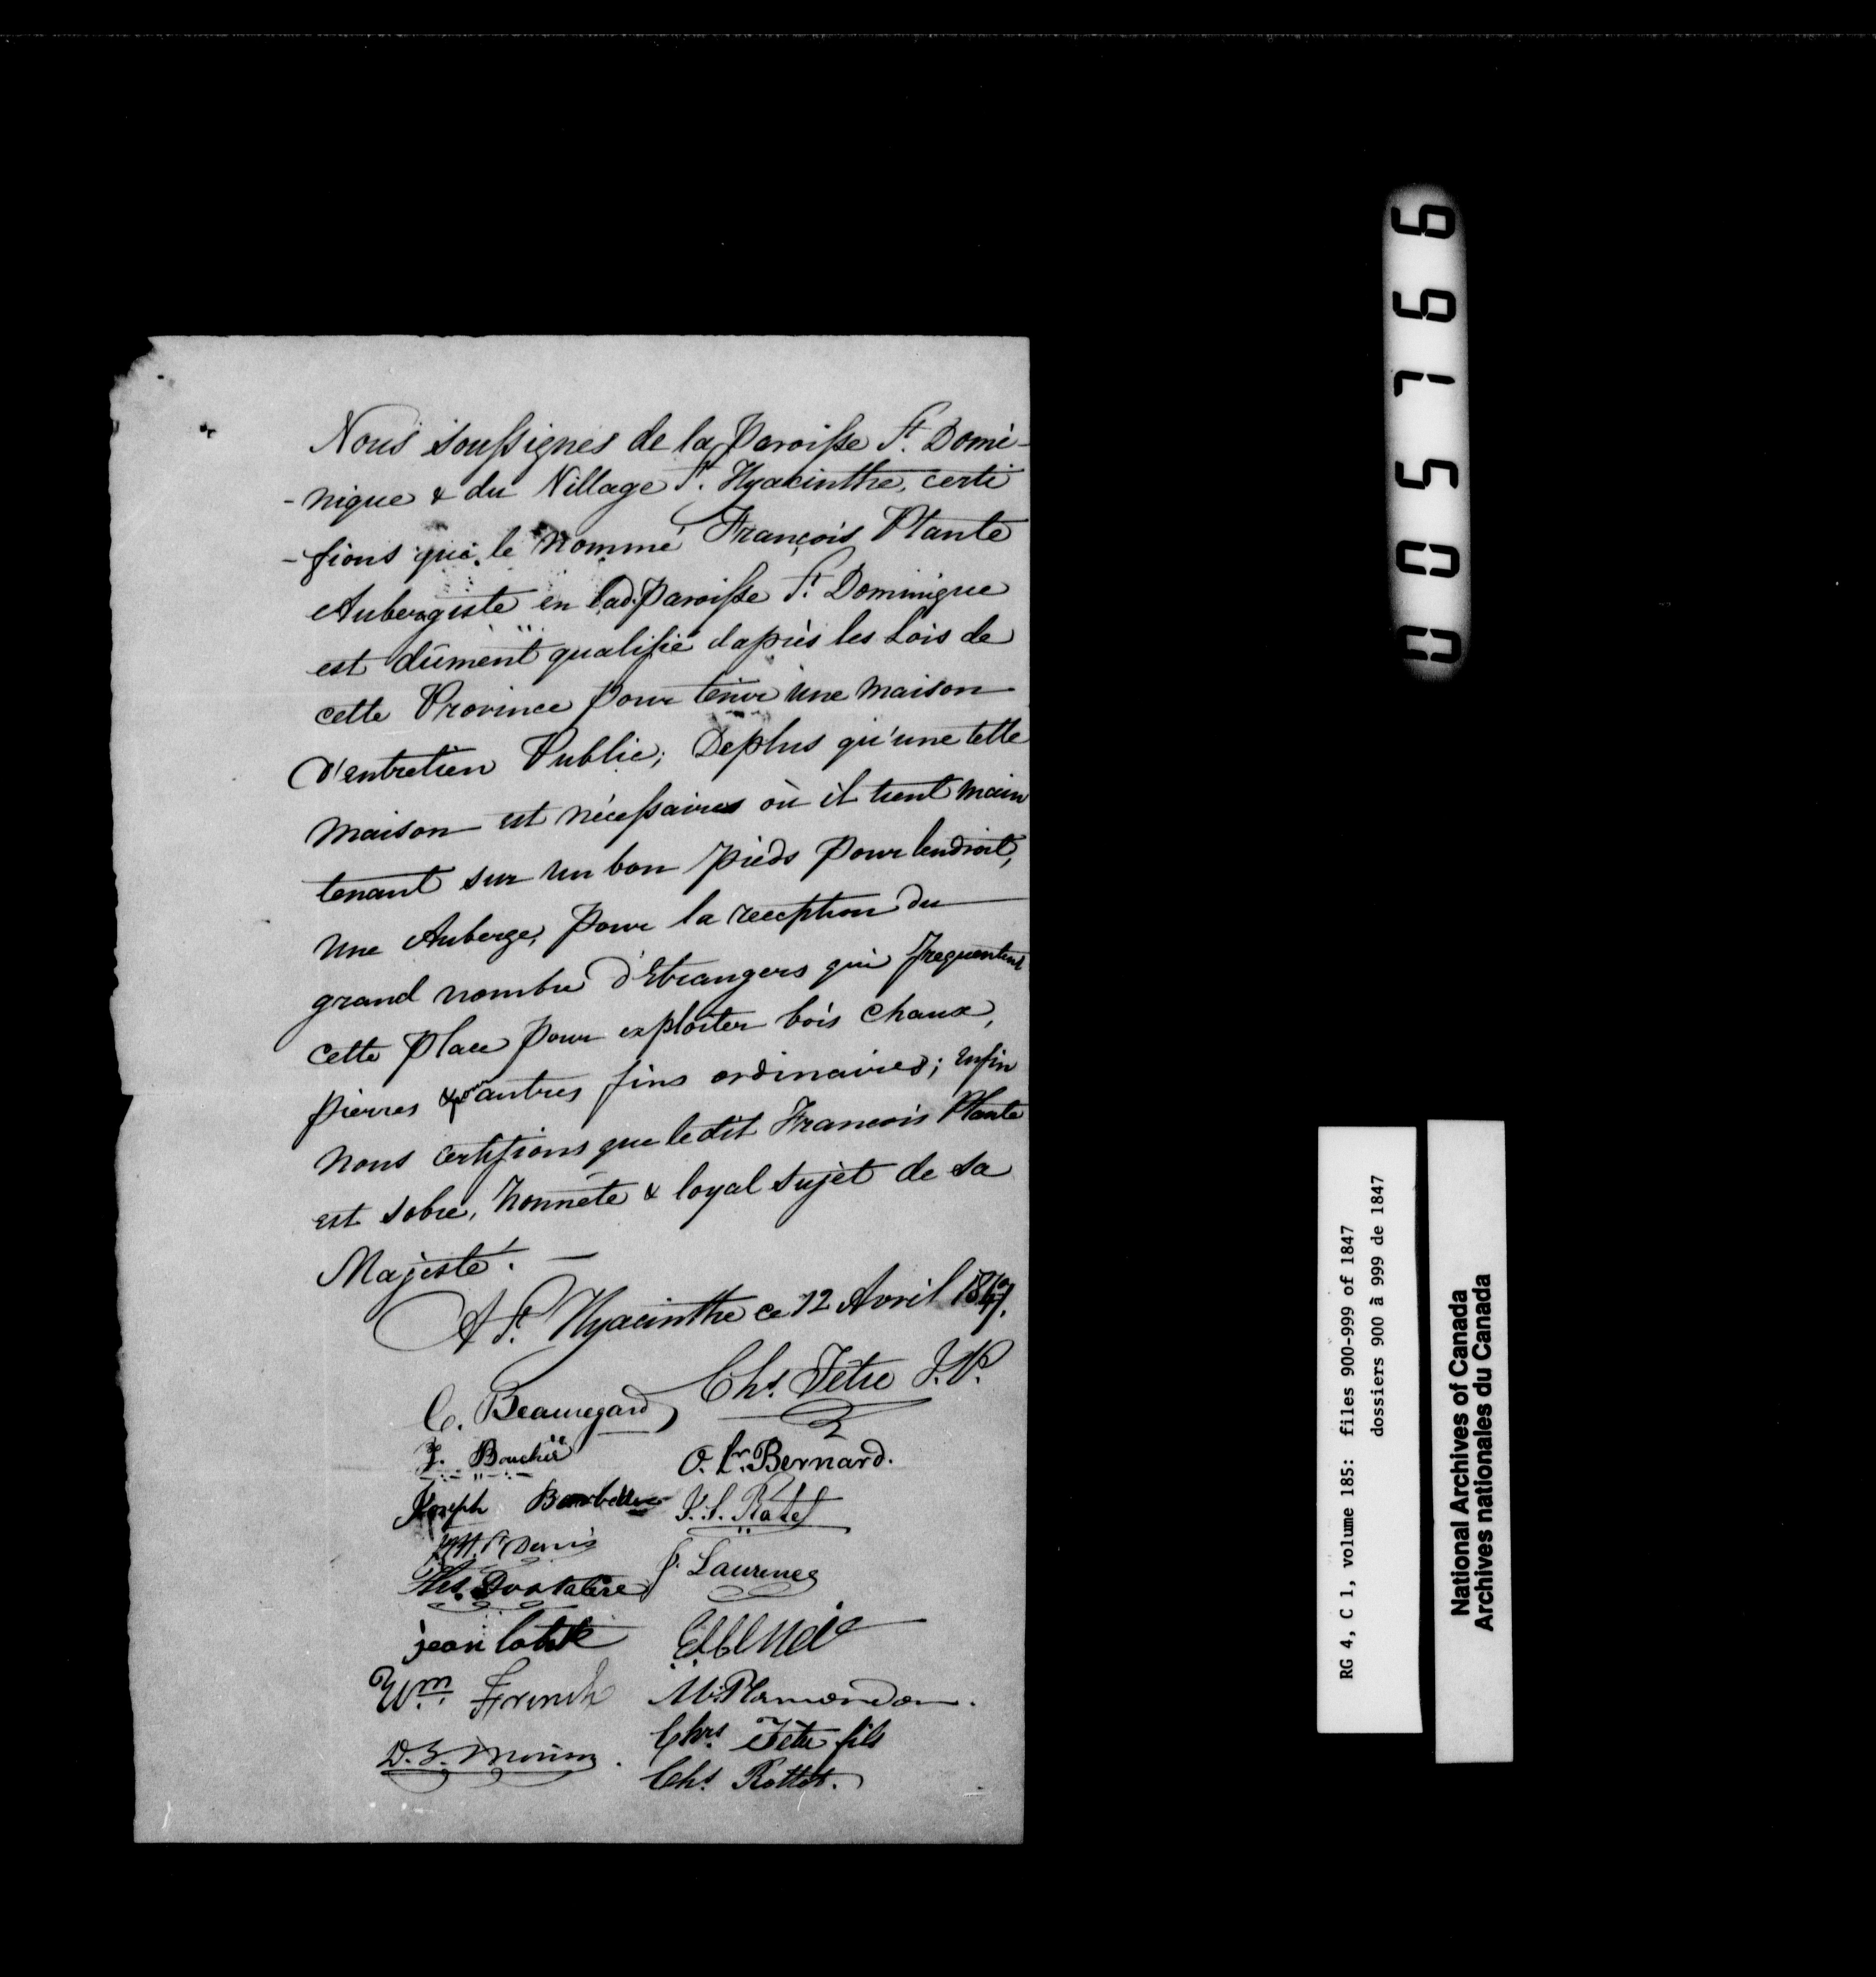 Nous soussignes de la Paroisse St. Domi-
-nique & du Village St. Hyacinthe, certi
-fions que le nommé François Plante
Aubergiste en lad. paroisse St. Dominique
est dûment qualifié dapriès les Lois de
cette Province pour tenir une maison
d'entretien Public; Deplus qu'une telle
maison est nécessaires où il tient main
tenant sur un bon pieds pour lendroit,
une Auberge, pour la reception du
grand nombre d'Etrangers qui frequentent
cette place pour exploiter bois chaux,
pierres & pour autres fins ordinaires; Enfin
nous certifions que ledit Francois Plante
est sobre, honnête & loyal sujet de sa
Majesté. —
A St. Hyacinthe ce 12 Avril 1847.
Chs. Têtu J.P.
C. Beauregard
J. Boucher
O. Lr. Bernard.
Joseph
Denis
J. Laurence
jean
Wm. French
M. Plamondon.
D. G. Morison.
Chrs Têtu fils
Chs Rottot.
005766
RG 4, C 1, volume 185: files 900-999 of 1847
dossiers 900 à 999 de 1847
National Archives of Canada
Archives nationales du Canada